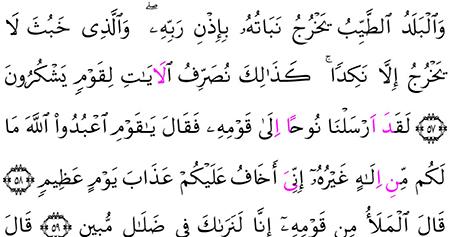 وَٱلْبَلَدُ ٱلطَّيِّبُ يَخْرُجُ نَبَاتُهُۥ بِإِذْنِ رَبِّهِۦۖ وَٱلَّذِى خَبُثَ لَا
يَخْرُجُ إِلَّا نَكِدًاۚ كَذَٰلِكَ نُصَرِّفُ ٱلَايَٰتِ لِقَوْمٍ يَشْكُرُونَ
۝٥٧ لَقَدَ ارْسَلْنَا نُوحًا اِلَىٰ قَوْمِهِۦ فَقَالَ يَٰقَوْمِ ٱعْبُدُوا۟ ٱللَّهَ مَا
لَكُم مِّنِ اِلَٰهٍ غَيْرُهُۥٓ إِنِّىَ أَخَافُ عَلَيْكُمْ عَذَابَ يَوْمٍ عَظِيمٍ ۝٥٨
قَالَ ٱلْمَلَأُ مِن قَوْمِهِۦٓ إِنَّا لَنَرَىٰكَ فِى ضَلَٰلٍ مُّبِينٍ ۝٥٩ قَالَ